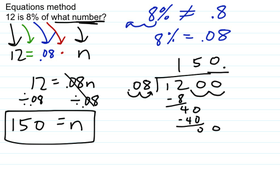 Equations method
12 is 8% of what number?
12 = .08 · n
12 = .08n
÷.08 ÷.08
150 = n
8% ≠ .8
8% = .08
150.
.08)1200
-8
40
-40
00